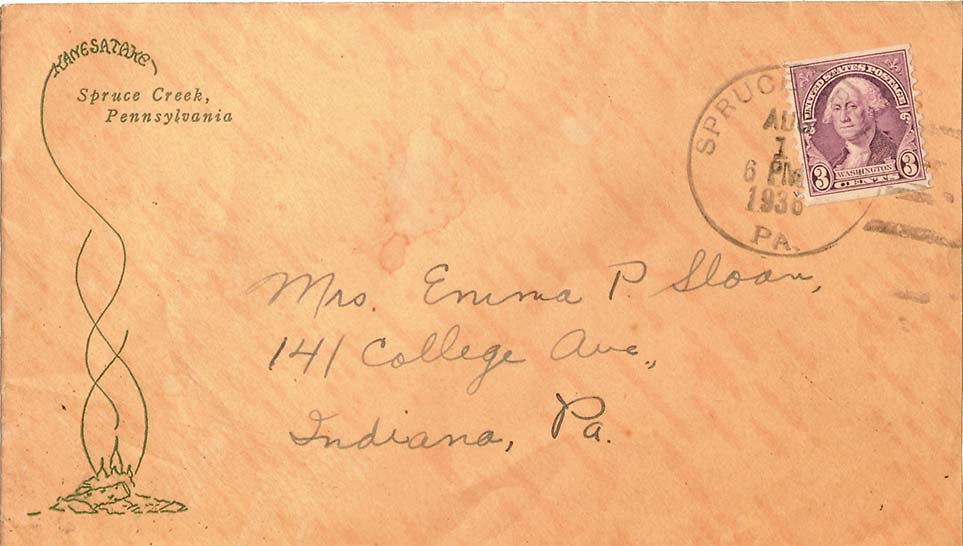 KANESATAKE
Spruce Creek,
Pennsylvania
SPRUCE
AUG
1
6 PM
1936
PA.
UNITED STATES POSTAGE
3
WASHINGTON
3
CENTS
Mrs. Emma P. Sloan,
141 College Ave.,
Indiana, Pa.